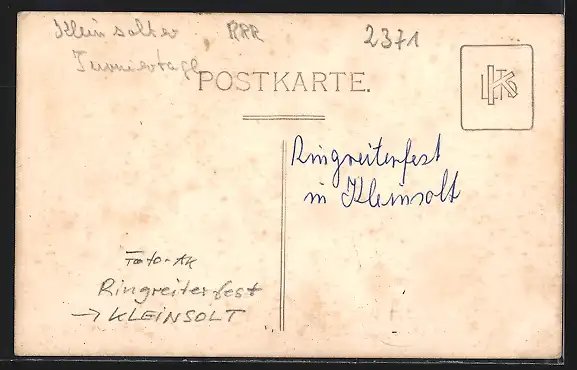 Kleinsolter RRR 2371
Turniertage
POSTKARTE.
Ringreiterfest
in Kleinsolt
Foto-AK
Ringreiterfest
→ KLEINSOLT